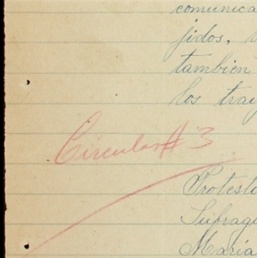 comunica
jidos,
tambien
los tra
Circular # 3
Protesto
Sufrag
Maria